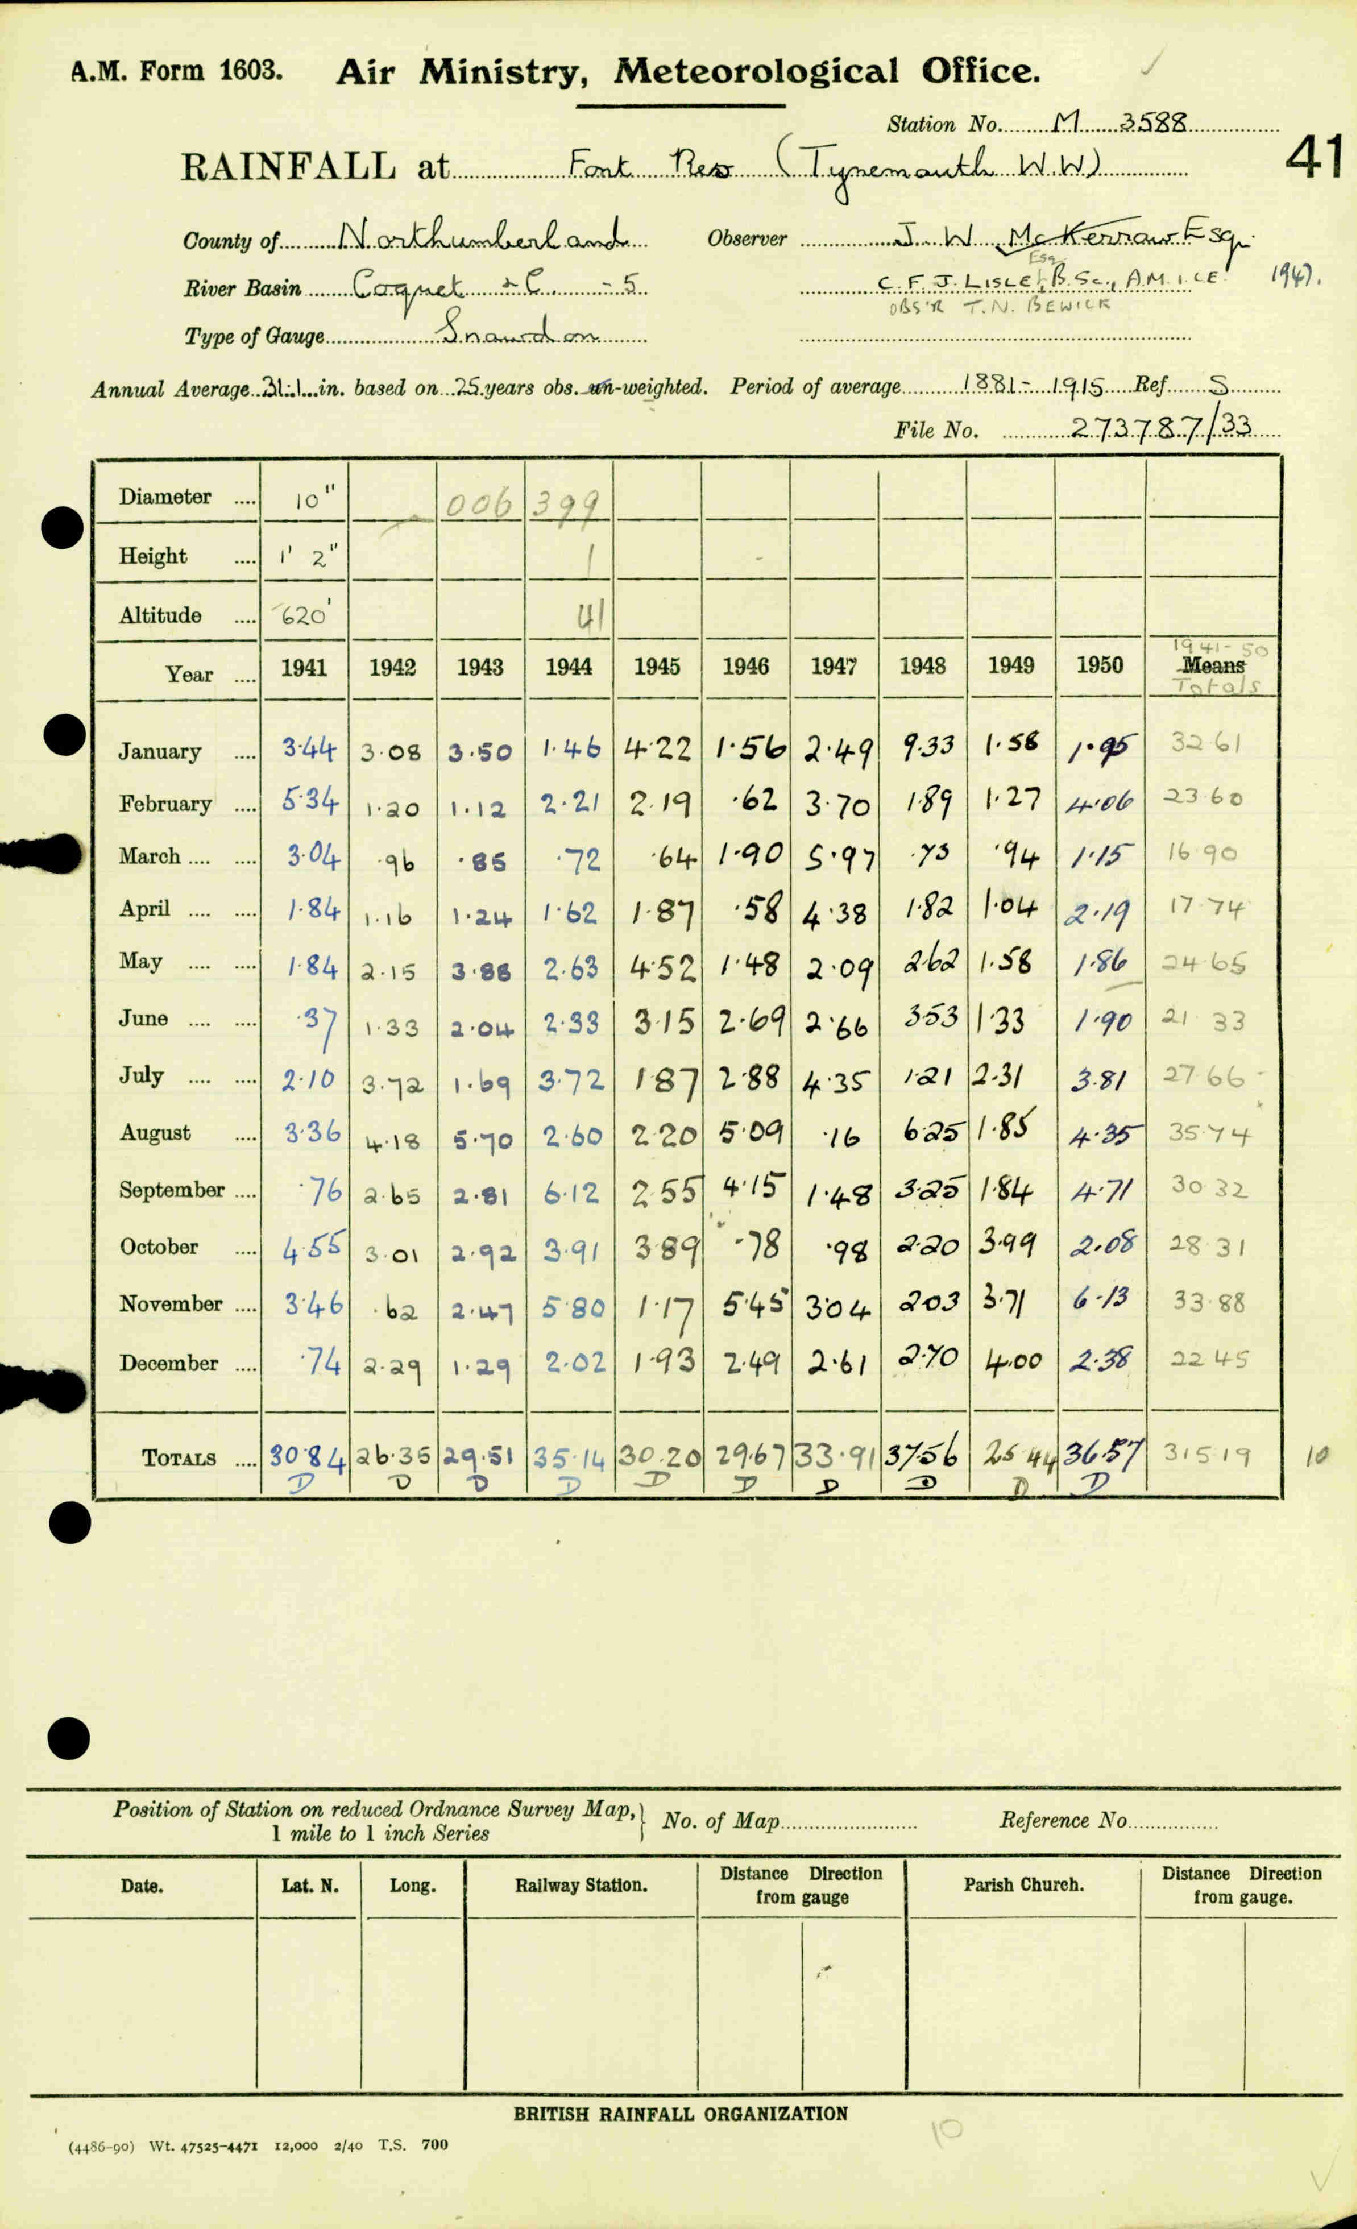 A.M. Form 1603. Air Ministry, Meteorological Office.
Station No. M 3588
41
RAINFALL at Font Res (Tynemouth W.W)
County of Northumberland Observer J. W. McKerrow Esqr.
River Basin Coquet &C. - 5 C. F. J. LISLE, Esq. B.Sc., A.M.I.C.E. 1947.
OBS'R T.N. BEWICK
Type of Gauge Snowdon
Annual Average 31.1 in. based on 25 years obs. un-weighted. Period of average 1881-1915 Ref S
File No. 273787/33
Diameter .... 10" 006 399
Height .... 1' 2" 1
Altitude .... 620' 41
Year .... 1941 1942 1943 1944 1945 1946 1947 1948 1949 1950 1941-50 Means Totals
January .... 3.44 3.08 3.50 1.46 4.22 1.56 2.49 9.33 1.58 1.95 32 61
February .... 5.34 1.20 1.12 2.21 2.19 .62 3.70 1.89 1.27 4.06 23 60
March .... .... 3.04 .96 .85 .72 .64 1.90 5.97 .73 .94 1.15 16 90
April .... .... 1.84 1.16 1.24 1.62 1.87 .58 4.38 1.82 1.04 2.19 17.74
May .... .... 1.84 2.15 3.88 2.63 4.52 1.48 2.09 2.62 1.58 1.86 24 65
June .... .... .37 1.33 2.04 2.33 3.15 2.69 2.66 3.53 1.33 1.90 21 33
July .... .... 2.10 3.72 1.69 3.72 1.87 2.88 4.35 1.21 2.31 3.81 27 66
August .... 3.36 4.18 5.70 2.60 2.20 5.09 .16 6.25 1.85 4.35 35.74
September .... .76 2.65 2.81 6.12 2.55 4.15 1.48 3.25 1.84 4.71 30 32
October .... 4.55 3.01 2.92 3.91 3.89 .78 .98 2.20 3.99 2.08 28 31
November .... 3.46 .62 2.47 5.80 1.17 5.45 3.04 2.03 3.71 6.13 33.88
December .... .74 2.29 1.29 2.02 1.93 2.49 2.61 2.70 4.00 2.38 22 45
TOTALS .... 30.84 26.35 29.51 35.14 30.20 29.67 33.91 37.56 25.44 36.57 315.19 10
D D D D D D D D D D
Position of Station on reduced Ordnance Survey Map, } No. of Map Reference No.
1 mile to 1 inch Series
Date. Lat. N. Long. Railway Station. Distance Direction from gauge Parish Church. Distance Direction from gauge.
BRITISH RAINFALL ORGANIZATION
10
(4486-90) Wt. 47525-4471 12,000 2/40 T.S. 700